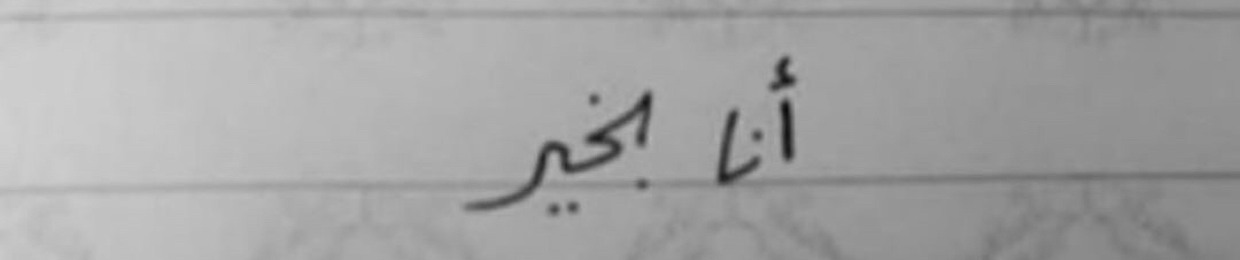 أنا بخير